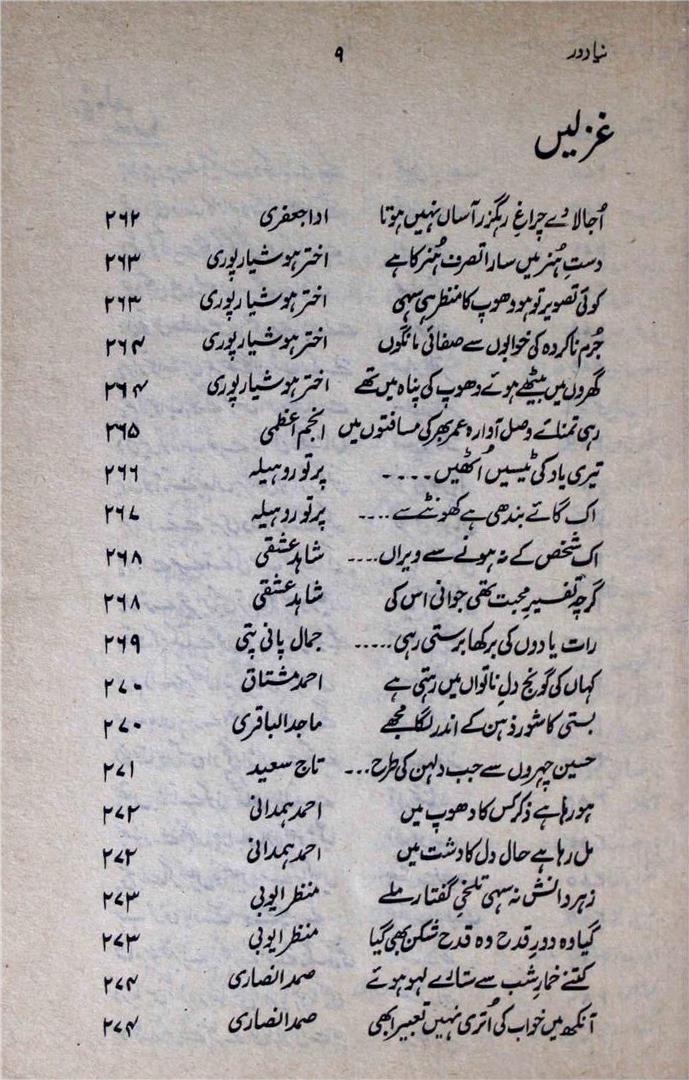 نیا دور ۹
غزلیں
اُجالا دے چراغِ رہگزر آساں نہیں ہوتا ادا جعفری ۲۶۲
دستِ ہُنر میں سارا تصرف ہُنر کا ہے اختر ہوشیارپوری ۲۶۳
کوئی تصویر تو ہو دھوپ کا منظر ہی سہی اختر ہوشیارپوری ۲۶۳
جُرمِ ناکردہ کی خوابوں سے صفائی مانگوں اختر ہوشیارپوری ۲۶۴
گھروں میں بیٹھے ہوئے دھوپ کی پناہ میں تھے اختر ہوشیارپوری ۲۶۴
رہی تمنائے وصل آوارہ عمر بھر کی مسافتوں میں انجم اعظمی ۲۶۵
تیری یاد کی ٹیسیں اُٹھیں.... پرتو روہیلہ ۲۶۶
اک گائے بندھی ہے کھونٹے سے .... پرتو روہیلہ ۲۶۷
اک شخص کے نہ ہونے سے ویراں .... شاہد عشقی ۲۶۸
گرچہ تفسیرِ محبت تھی جوانی اس کی شاہد عشقی ۲۶۸
رات یادوں کی برکھا برستی رہی ..... جمال پانی پتی ۲۶۹
کہاں کی گونج دلِ ناتواں میں رہتی ہے احمد مشتاق ۲۷۰
بستی کا شور ذہن کے اندر لگا مجھے ماجد الباقری ۲۷۰
حسین چہروں سے جب دلہن کی طرح ... تاج سعید ۲۷۱
ہو رہا ہے ذکر کس کا دھوپ میں احمد ہمدانی ۲۷۲
مل رہا ہے حال دل کا دشت میں احمد ہمدانی ۲۷۲
زہرِ دانش نہ سہی تلخیِ گفتار ملے منظر ایوبی ۲۷۳
گیا وہ دورِ قدح وہ قدح شکن بھی گیا منظر ایوبی ۲۷۳
کتنے خمارِ شب سے ستارے لہو ہوئے صمد انصاری ۲۷۴
آنکھ میں خواب کی اُتری نہیں تعبیر ابھی صمد انصاری ۲۷۴